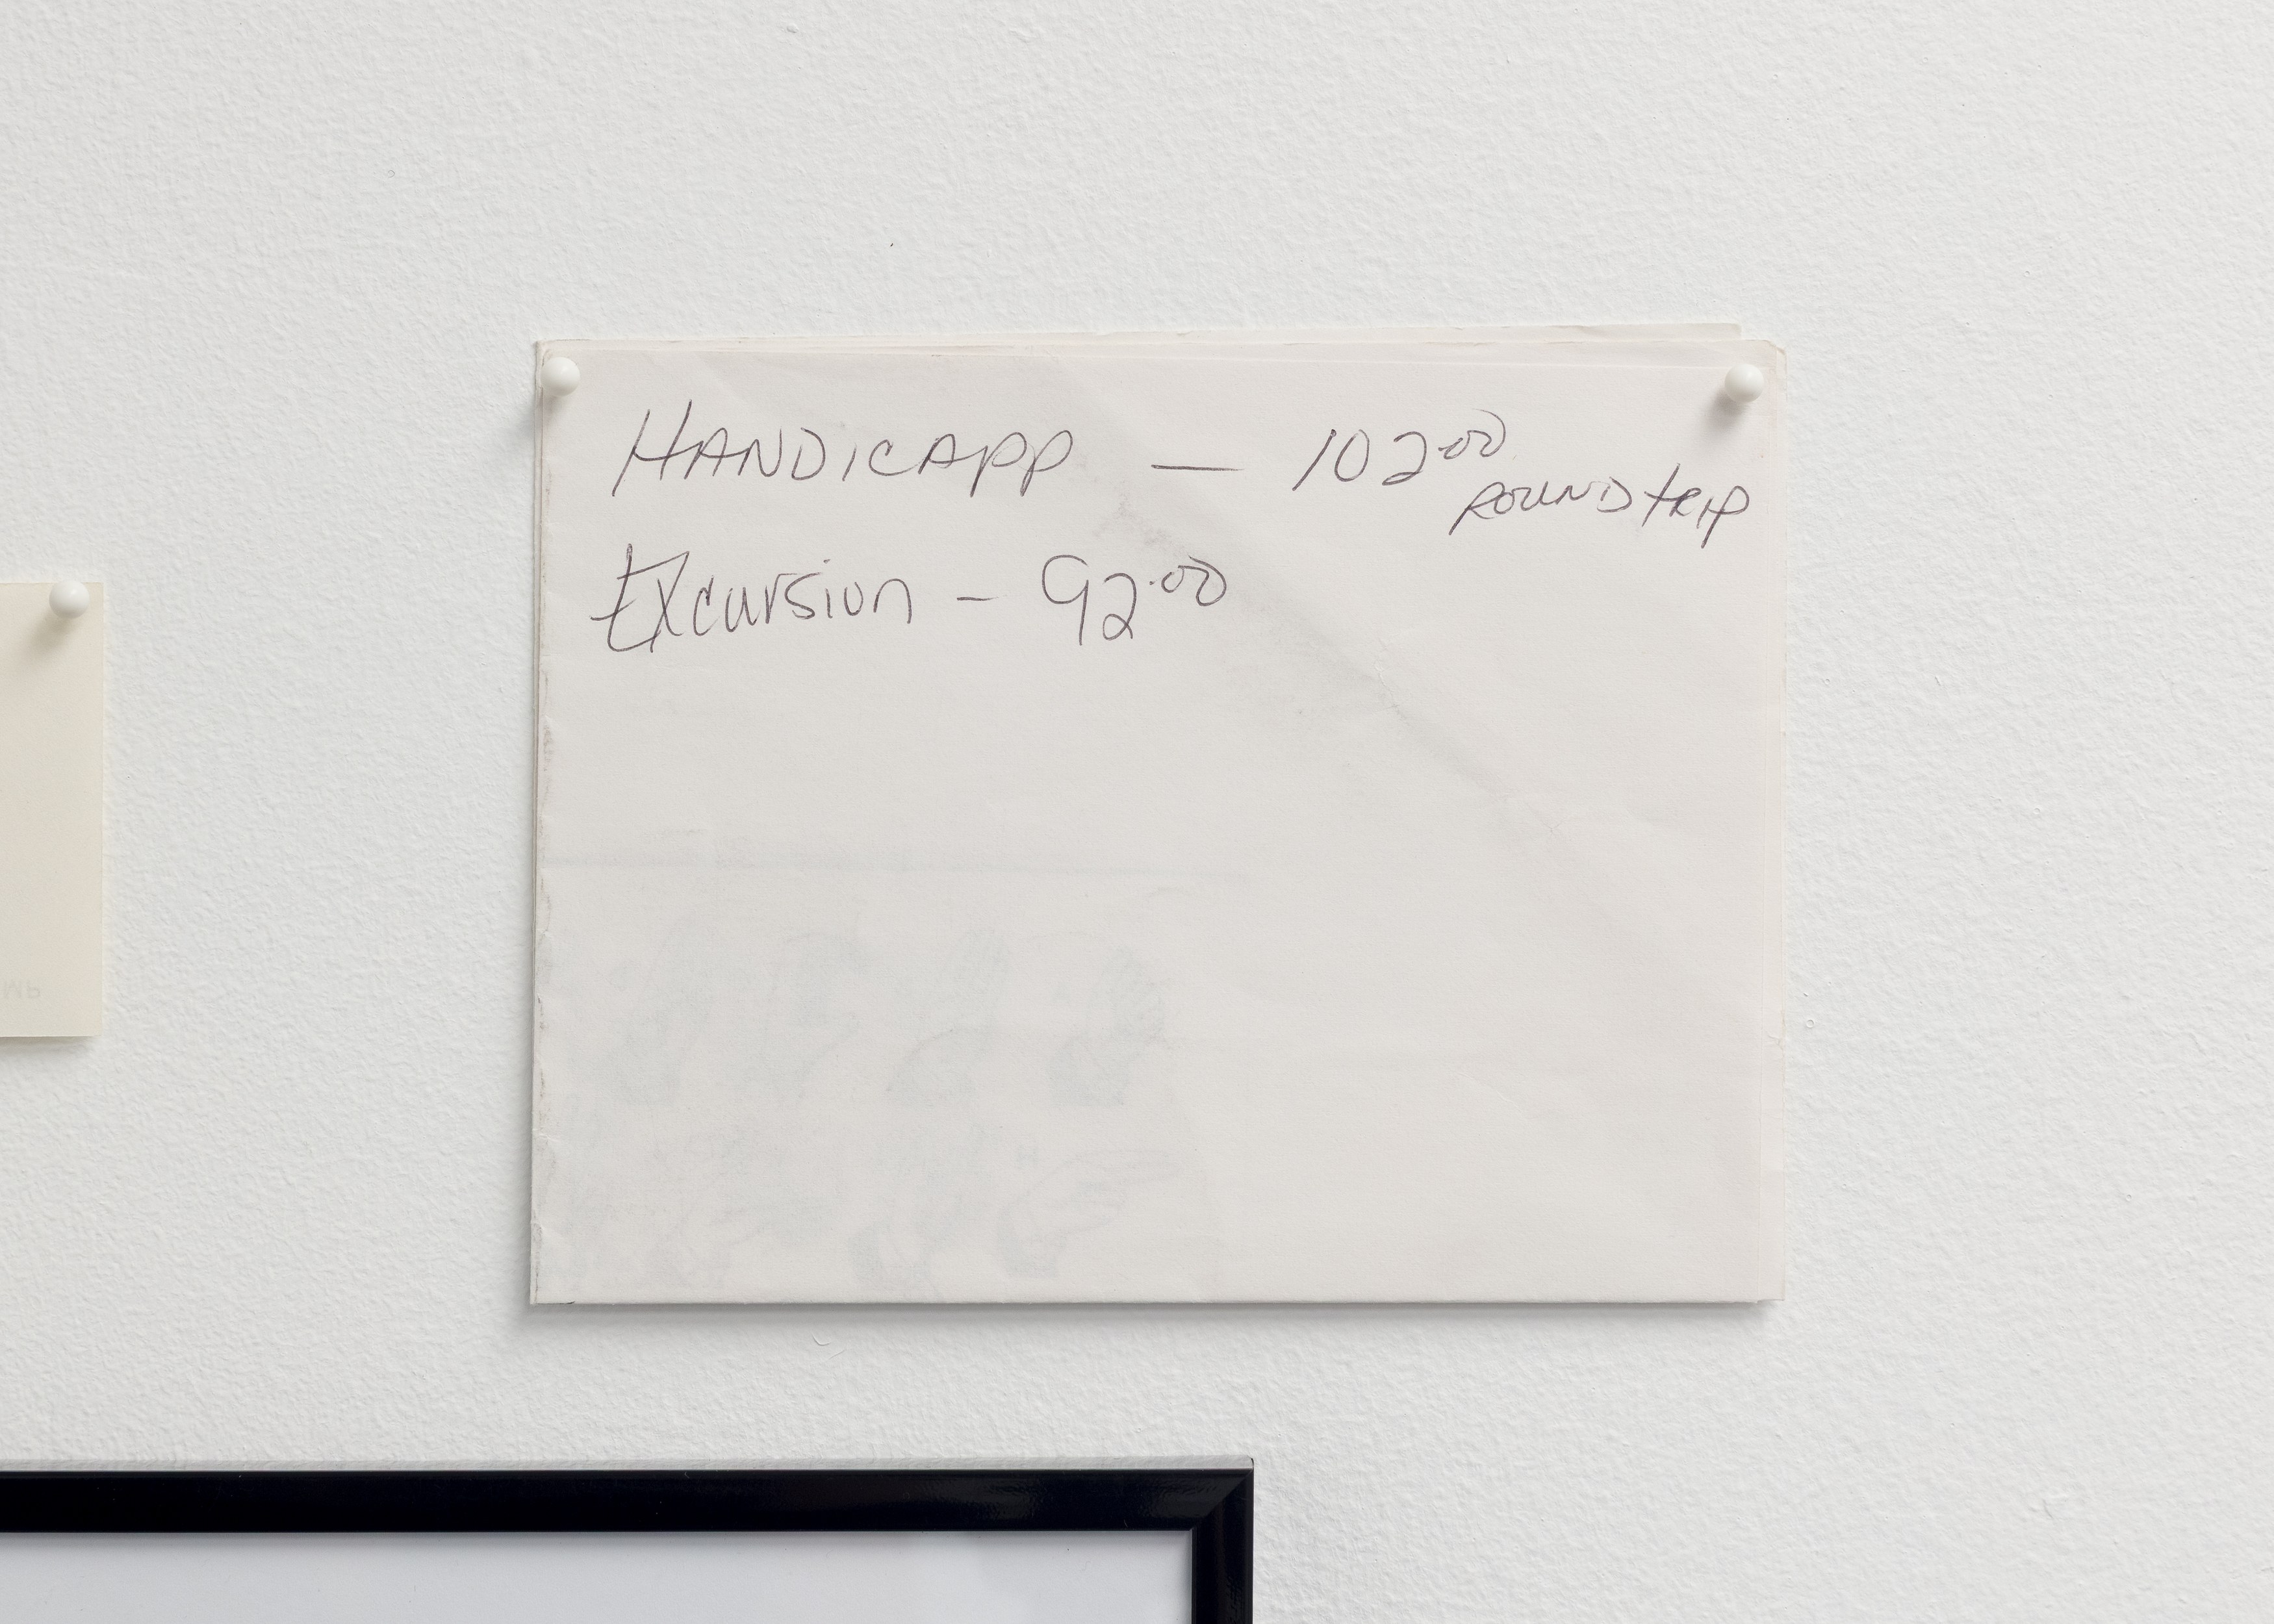 HANDICAPP — 102.00
ROUNDTRIP
Excursion – 92.00